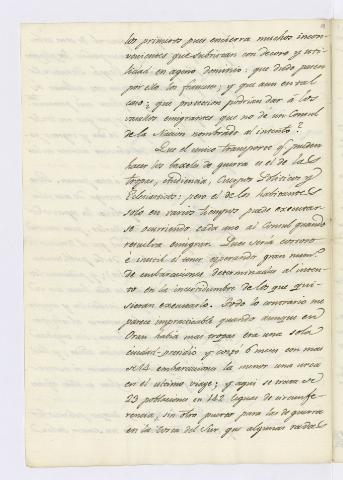 los primeros pues encierra muchos incon-
venientes que subsistan con decoro y uti-
lidad en ageno dominio: que dudo pasen
por ello los franceses; y que aun en tal
caso ¿que proteccion podrian dar á los
vasallos emigrantes que no dé un Consul
de la Nacion nombrado al intento?
Que el unico transporte qe. pueden
hacer los baxeles de guerra es el de la
tropa, Audiencia, Cuerpos Politicos y
Eclesiasticos; pero el de los habitantes
solo en varios tiempos puede executar-
se ocurriendo cada uno al Consul quando
resuelva emigrar. Pues seria costoso
é inutil el tener esperando gran num.o
de embarcaciones determinadas al inten-
to en la incertidumbre de los que qui-
sieran executarlo. Todo lo contrario me
parece impracticable quando aunque en
Oran habia mas tropas era una sola
ciudad-presidio y costó 6 meses con mas
de 14 embarcaciones la menor una urca
en el ultimo viage; y aqui se trata de
23 poblaciones en 142 leguas de circunfe-
rencia, sin otro puerto para los de guerra
en la costa del Sur que algunas radas